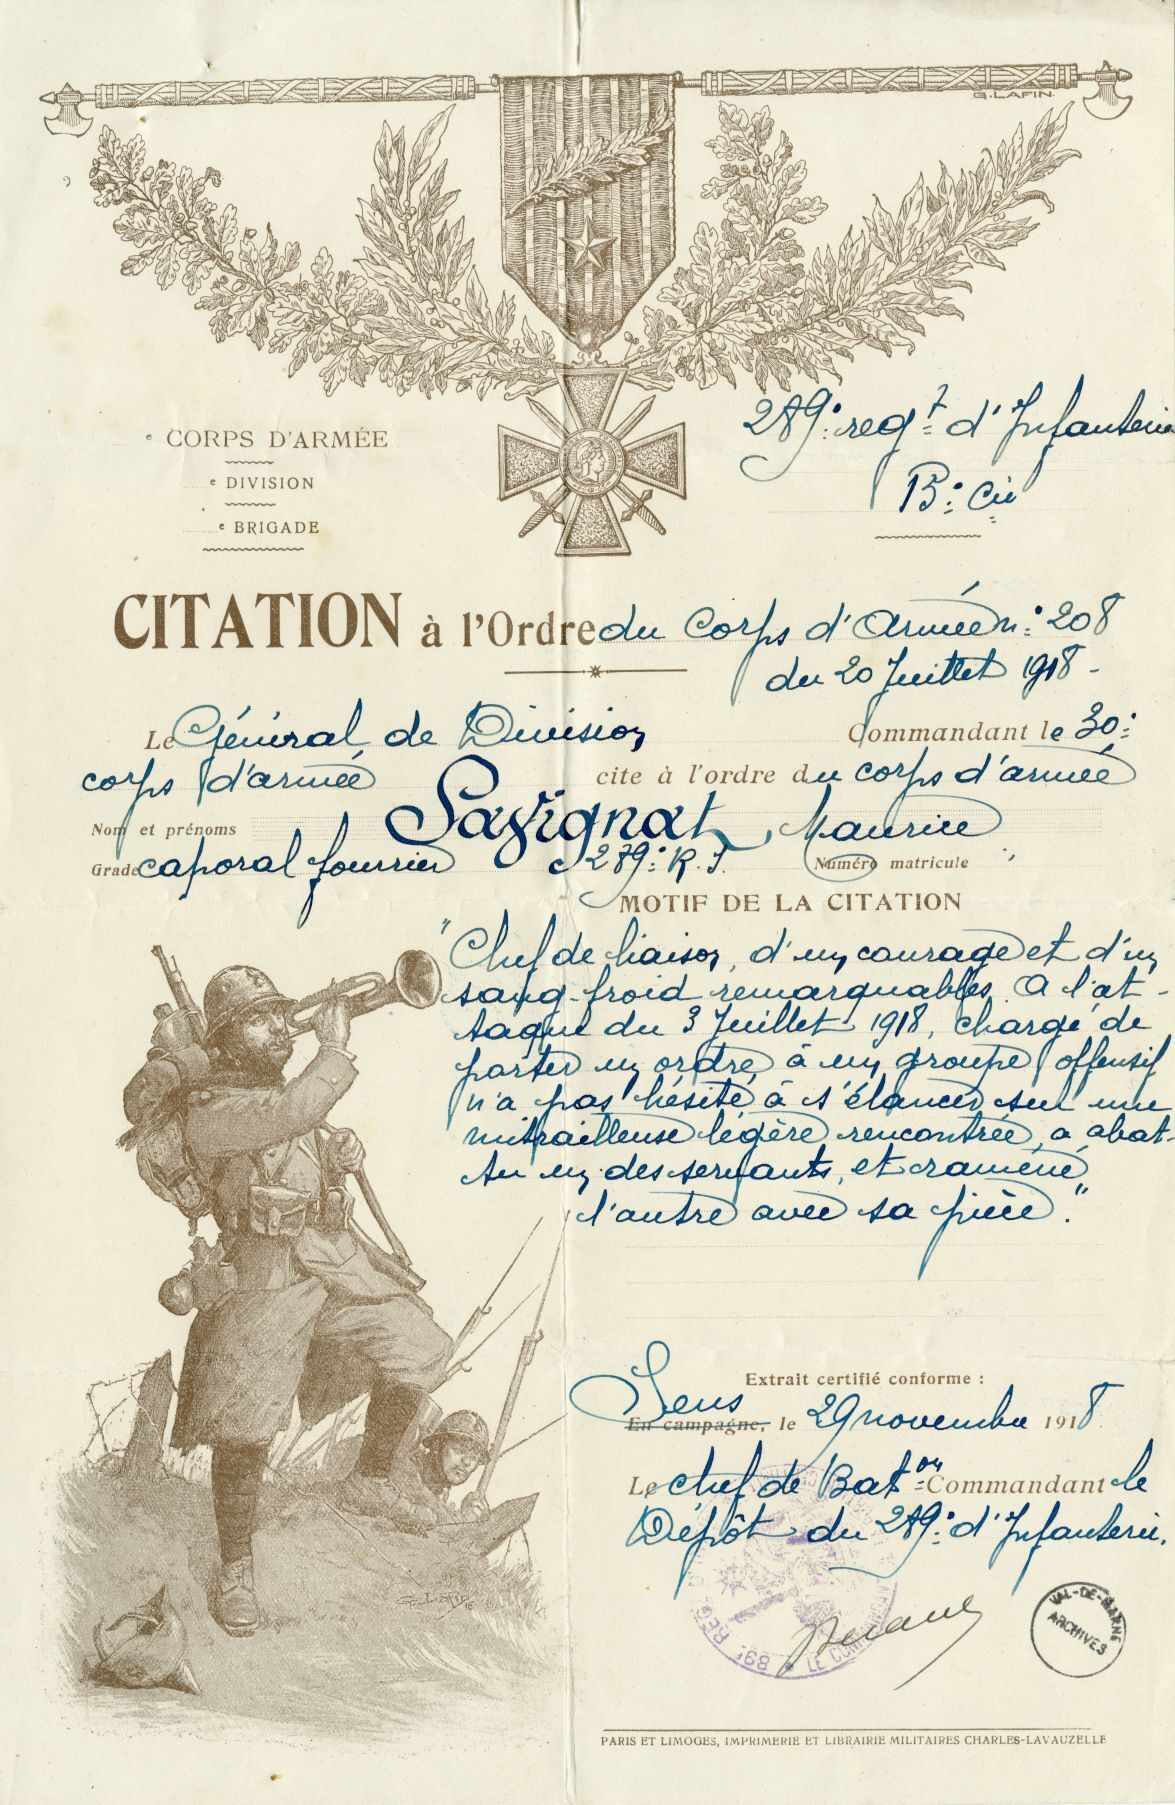 G. LAFIN
289e regt d'Infanterie
e CORPS D'ARMÉE
e DIVISION
e BRIGADE
B: Cie
CITATION à l'Ordre du Corps d'Armée n: 208
du 20 Juillet 1918 -
Le Général de Division Commandant le 30:
corps d'armée cite à l'ordre du corps d'armée
Nom et prénoms Savignat, Maurice
Grade caporal fourrier 279: R.I. Numéro matricule
MOTIF DE LA CITATION
"Chef de liaison, d'un courage et d'un
sang-froid remarquables. A l'at-
taque du 3 Juillet 1918, chargé de
porter un ordre, à un groupe offensif
n'a pas hésité à s'élancer sur une
mitrailleuse légère rencontrée, a abat-
tu un des servants, et ramené
l'autre avec sa pièce."
Extrait certifié conforme :
Sens
En campagne, le 29 novembre 1918
Le chef de Baton Commandant le
Dépôt du 289: d'Infanterie.
89e REG
LE COMMANDANT
VAL-DE-MARNE
ARCHIVES
PARIS ET LIMOGES, IMPRIMERIE ET LIBRAIRIE MILITAIRES CHARLES-LAVAUZELLE